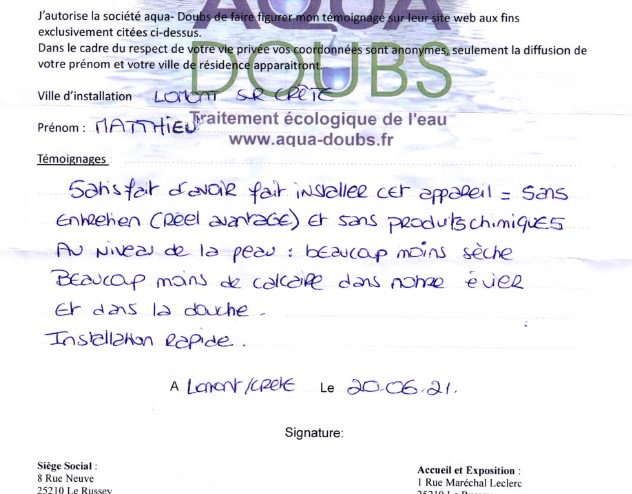 AQUA
J'autorise la société aqua- Doubs de faire figurer mon témoignage sur leur site web aux fins
exclusivement citées ci-dessus.
Dans le cadre du respect de votre vie privée vos coordonnées sont anonymes, seulement la diffusion de
votre prénom et votre ville de résidence apparaitront.
DOUBS
Ville d'installation LOMONT SR CRETE
Prénom : MATTHIEU
Traitement écologique de l'eau
www.aqua-doubs.fr
Témoignages :
Satisfait d'avoir fait installer cet appareil = sans
Entretien (réel avantage) et sans produits chimiques
Au niveau de la peau : beaucoup moins sèche
Beaucoup moins de calcaire dans notre évier
Et dans la douche.
Installation rapide.
A Lomont/Crete Le 20.06.21.
Signature:
Siège Social :
8 Rue Neuve
25210 Le Russey
Accueil et Exposition :
1 Rue Maréchal Leclerc